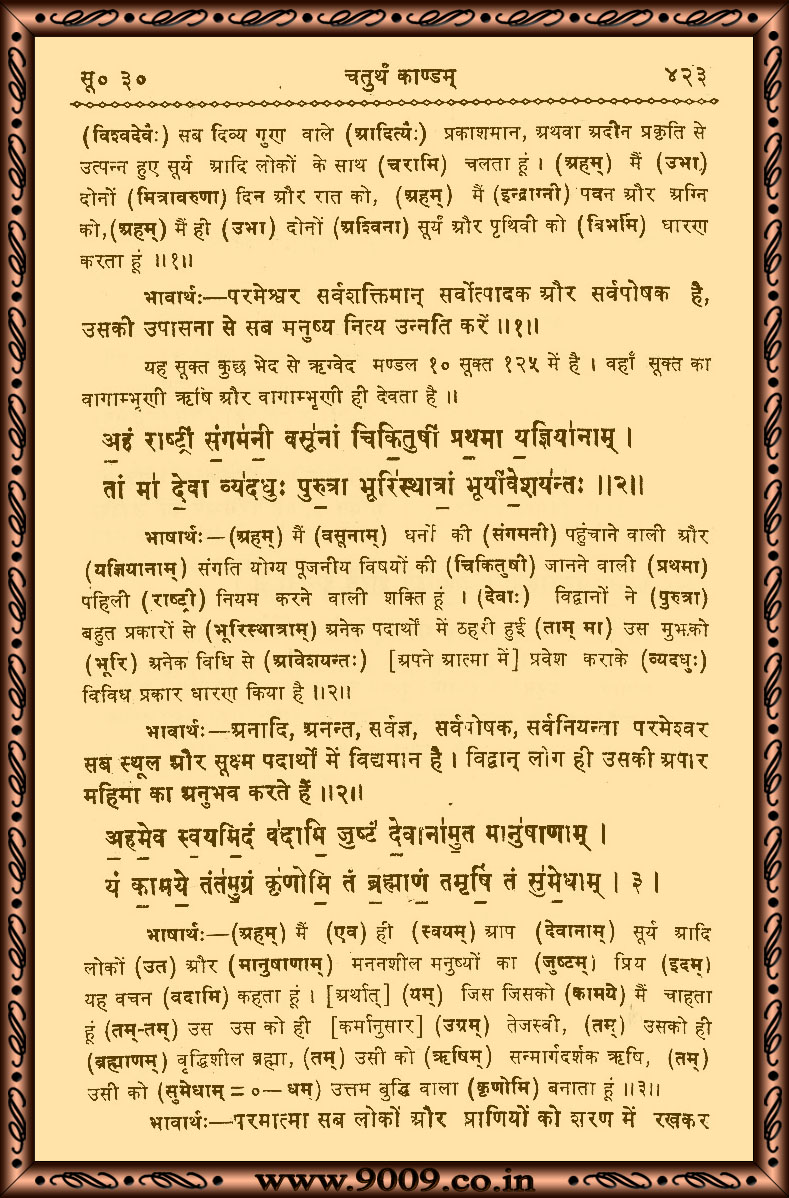 सू० ३० चतुर्थं काण्डम् ४२३
(विश्वदेवैः) सब दिव्य गुण वाले (आदित्यैः) प्रकाशमान, अथवा अदीन प्रकृति से
उत्पन्न हुए सूर्य आदि लोकों के साथ (चरामि) चलता हूं । (अहम्) मैं (उभा)
दोनों (मित्रावरुणा) दिन और रात को, (अहम्) मैं (इन्द्राग्नी) पवन और अग्नि
को,(अहम्) मैं ही (उभा) दोनों (अश्विना) सूर्य और पृथिवी को (बिभर्मि) धारण
करता हूं ॥१॥
भावार्थः—परमेश्वर सर्वशक्तिमान् सर्वोत्पादक और सर्वपोषक है,
उसकी उपासना से सब मनुष्य नित्य उन्नति करें ॥१॥
यह सूक्त कुछ भेद से ऋग्वेद मण्डल १० सूक्त १२५ में है । वहाँ सूक्त का
वागाम्भृणी ऋषि और वागाम्भृणी ही देवता है ॥
अ॒हं राष्ट्री॑ सं॒गम॑नी॒ वसू॑नां चिकि॒तुषी॑ प्रथ॒मा य॒ज्ञिया॑नाम् ।
तां मा॑ दे॒वा व्य॑दधुः पुरु॒त्रा भूरि॑स्थात्रां॒ भूर्या॑वे॒शय॑न्तः ॥२॥
भाषार्थः—(अहम्) मैं (वसूनाम्) धनों की (संगमनी) पहुंचाने वाली और
(यज्ञियानाम्) संगति योग्य पूजनीय विषयों की (चिकितुषी) जानने वाली (प्रथमा)
पहिली (राष्ट्री) नियम करने वाली शक्ति हूं । (देवाः) विद्वानों ने (पुरुत्रा)
बहुत प्रकारों से (भूरिस्थात्राम्) अनेक पदार्थों में ठहरी हुई (ताम् मा) उस मुझको
(भूरि) अनेक विधि से (आवेशयन्तः) [अपने आत्मा में] प्रवेश कराके (व्यदधुः)
विविध प्रकार धारण किया है ॥२॥
भावार्थः—अनादि, अनन्त, सर्वज्ञ, सर्वपोषक, सर्वनियन्ता परमेश्वर
सब स्थूल और सूक्ष्म पदार्थों में विद्यमान है । विद्वान् लोग ही उसकी अपार
महिमा का अनुभव करते हैं ॥२॥
अ॒हमे॒व स्व॒यमि॒दं व॑दामि॒ जुष्टं॑ दे॒वाना॑मु॒त मानु॑षाणाम् ।
यं का॒मये॒ तंत॑मु॒ग्रं कृ॑णोमि॒ तं ब्र॒ह्माणं॒ तमृषिं॒ तं सु॑मे॒धाम् । ३ ।
भाषार्थः—(अहम्) मैं (एव) ही (स्वयम्) आप (देवानाम्) सूर्य आदि
लोकों (उत) और (मानुषाणाम्) मननशील मनुष्यों का (जुष्टम्) प्रिय (इदम्)
यह वचन (वदामि) कहता हूं । [अर्थात्] (यम्) जिस जिसको (कामये) मैं चाहता
हूं (तम्-तम्) उस उस को ही [कर्मानुसार] (उग्रम्) तेजस्वी, (तम्) उसको ही
(ब्रह्माणम्) वृद्धिशील ब्रह्मा, (तम्) उसी को (ऋषिम्) सन्मार्गदर्शक ऋषि, (तम्)
उसी को (सुमेधाम् = ०—धम्) उत्तम बुद्धि वाला (कृणोमि) बनाता हूं ॥३॥
भावार्थः—परमात्मा सब लोकों और प्राणियों को शरण में रखकर
www.9009.co.in